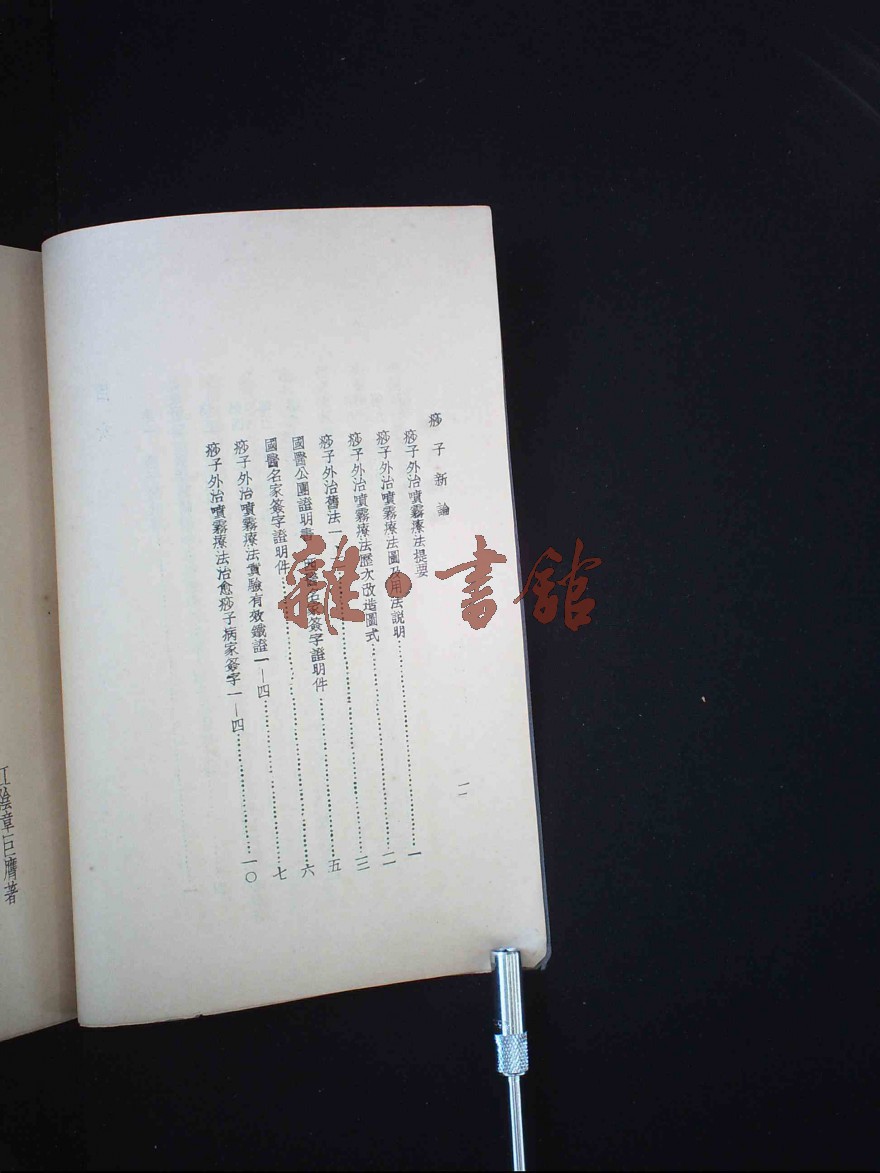 痧子新論
二
痧子外治噴霧療法提要
痧子外治噴霧療法圖及用法說明……………………一
痧子外治噴霧療法歷次改造圖式……………………二
痧子外治舊法一……………………三
國醫公團證明書 西醫名家簽字證明件……………………五
國醫名家簽字證明件……………………六
痧子外治噴霧療法實驗有效鐵證一—四……………………七
痧子外治噴霧療法治愈痧子病家簽字一—四……………………一〇
江陰章巨膺著
雜·書館